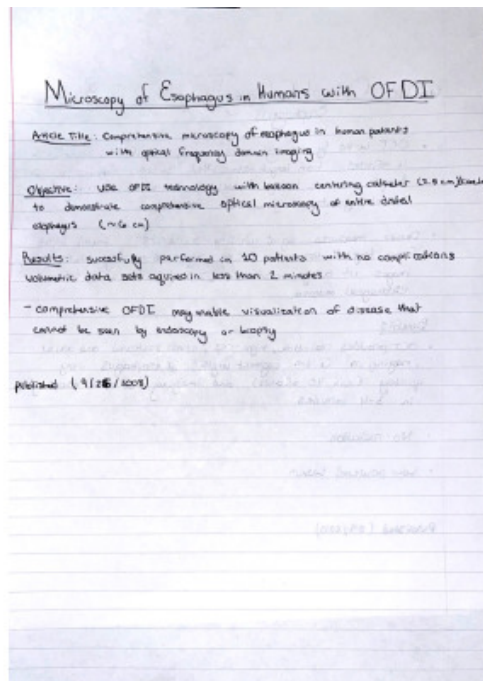 Microscopy of Esophagus in Humans with OFDI
Article Title: Comprehensive microscopy of esophagus in human patients
with optical frequency domain imaging
Objective: use OFDI technology with balloon centering catheter (2.5 cm)
to demonstrate comprehensive optical microscopy of entire distal
esophagus (~6 cm)
Results: succesfully performed in 10 patients with no complications
volumetric data sets aquired in less than 2 minutes
- comprehensive OFDI may enable visualization of disease that
cannot be seen by endoscopy or biopsy
published (9/26/2008)